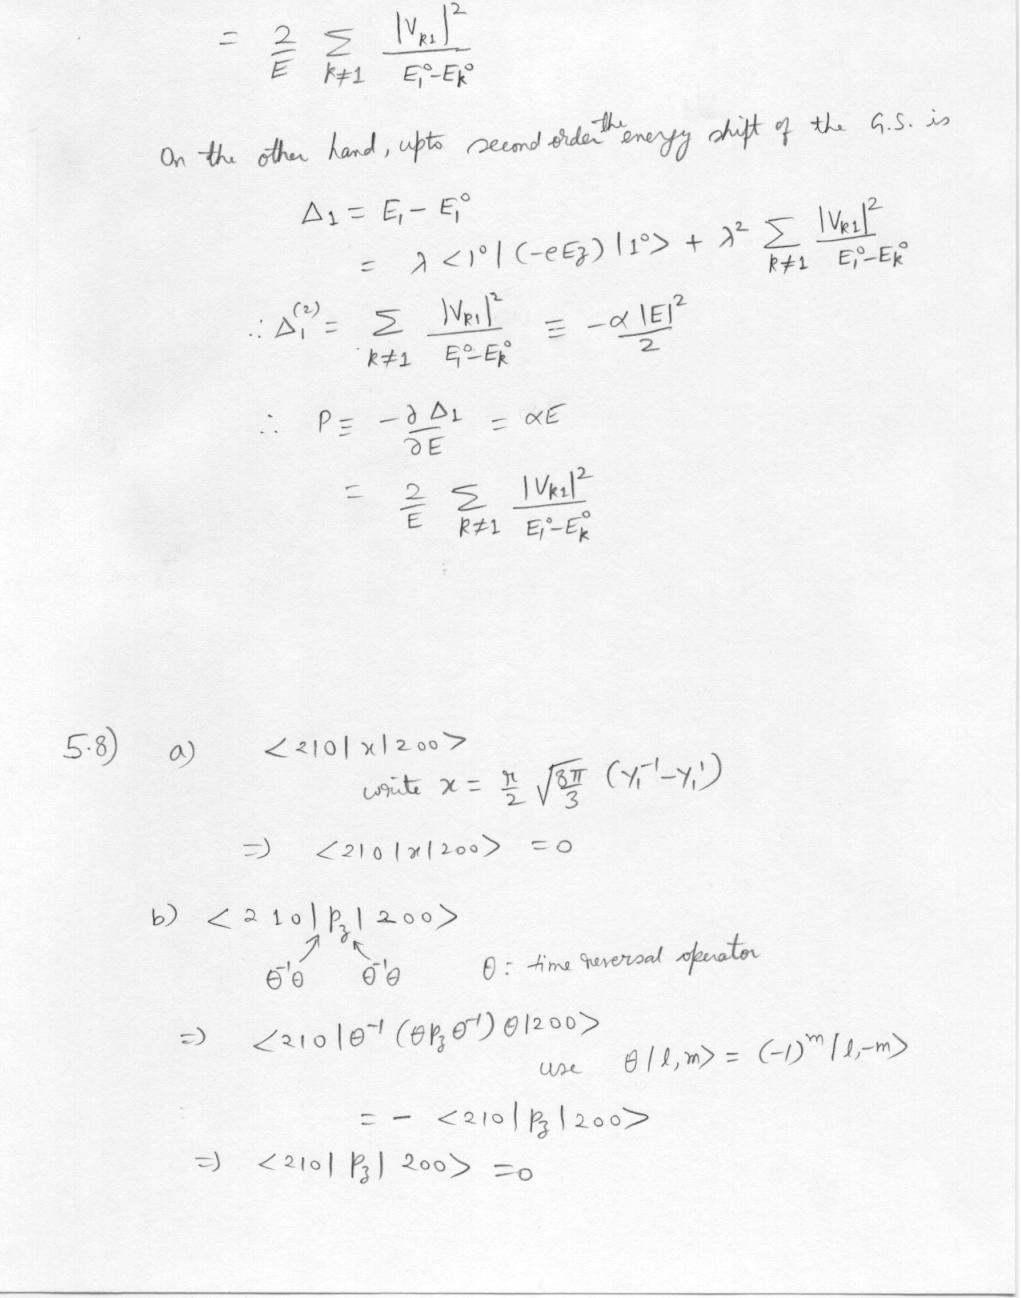 = 2/E Σ_{k≠1} |V_{k1}|² / (E₁⁰-E_k⁰)
On the other hand, upto second order the energy shift of the G.S. is
Δ₁ = E₁ - E₁⁰
= λ <1⁰| (-eEz) |1⁰> + λ² Σ_{k≠1} |V_{k1}|² / (E₁⁰-E_k⁰)
∴ Δ₁⁽²⁾ = Σ_{k≠1} |V_{k1}|² / (E₁⁰-E_k⁰) ≡ -α |E|² / 2
∴ P ≡ -∂Δ₁ / ∂E = αE
= 2/E Σ_{k≠1} |V_{k1}|² / (E₁⁰-E_k⁰)
5.8) a) <210|x|200>
write x = r/2 √(8π/3) (Y₁⁻¹-Y₁¹)
=> <210|x|200> = 0
b) <210|P_z|200>
θ⁻¹θ θ⁻¹θ θ : time reversal operator
=> <210|θ⁻¹ (θP_zθ⁻¹) θ|200>
use θ|l,m> = (-1)^m |l,-m>
= - <210|P_z|200>
=> <210|P_z|200> = 0